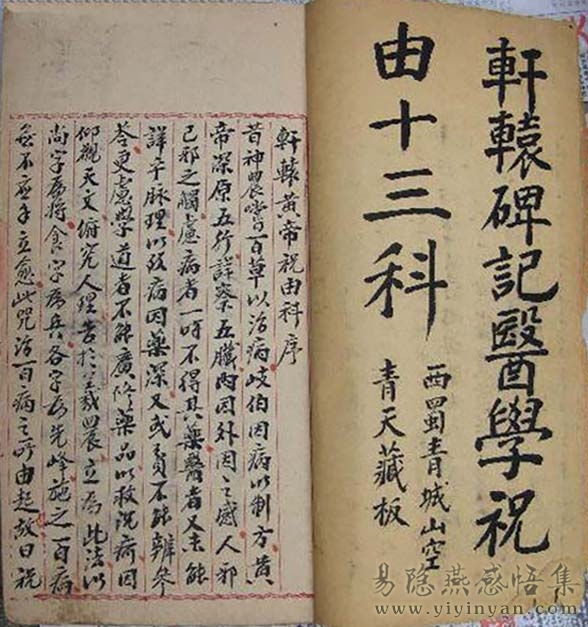 軒轅碑記醫學祝
由十三科
西蜀青城山空
青天藏板
軒轅黃帝祝由科序
昔神農嘗百草以治病岐伯因病以制方黃
帝深原五行詳察五臟內因外因之感人邪
已邪之觸慮病者一時不得其藥醫者又未能
詳辛脈理以致病因藥深又或貧不能辦參
苓更慮學道者不能廣修藥品以救沉疴因
仰觀天文俯究人理苦於農立為此法以
尚字為將食字為兵各字為先峰施之百病
無不應手立愈此咒治百病之所由起故曰祝
易隐燕感悟集
www.yiyinyan.com